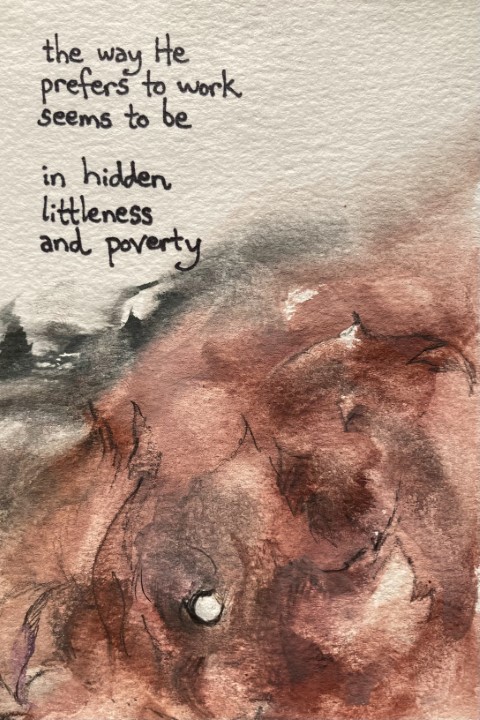 the way He
prefers to work
seems to be
in hidden
littleness
and poverty